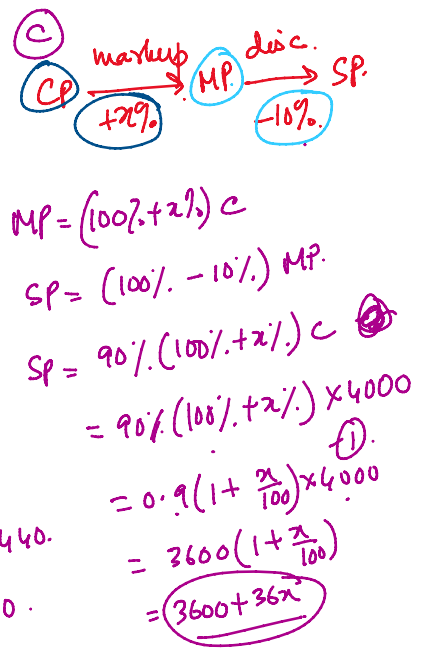 C
markup disc.
CP MP. SP.
+x% -10%.
MP = (100% + x%) C
SP = (100% - 10%) MP.
SP = 90% (100% + x%) C
= 90% (100% + x%) × 4000
①.
= 0.9 (1 + x/100) × 4000
440.
= 3600 (1 + x/100)
0.
= 3600 + 36x